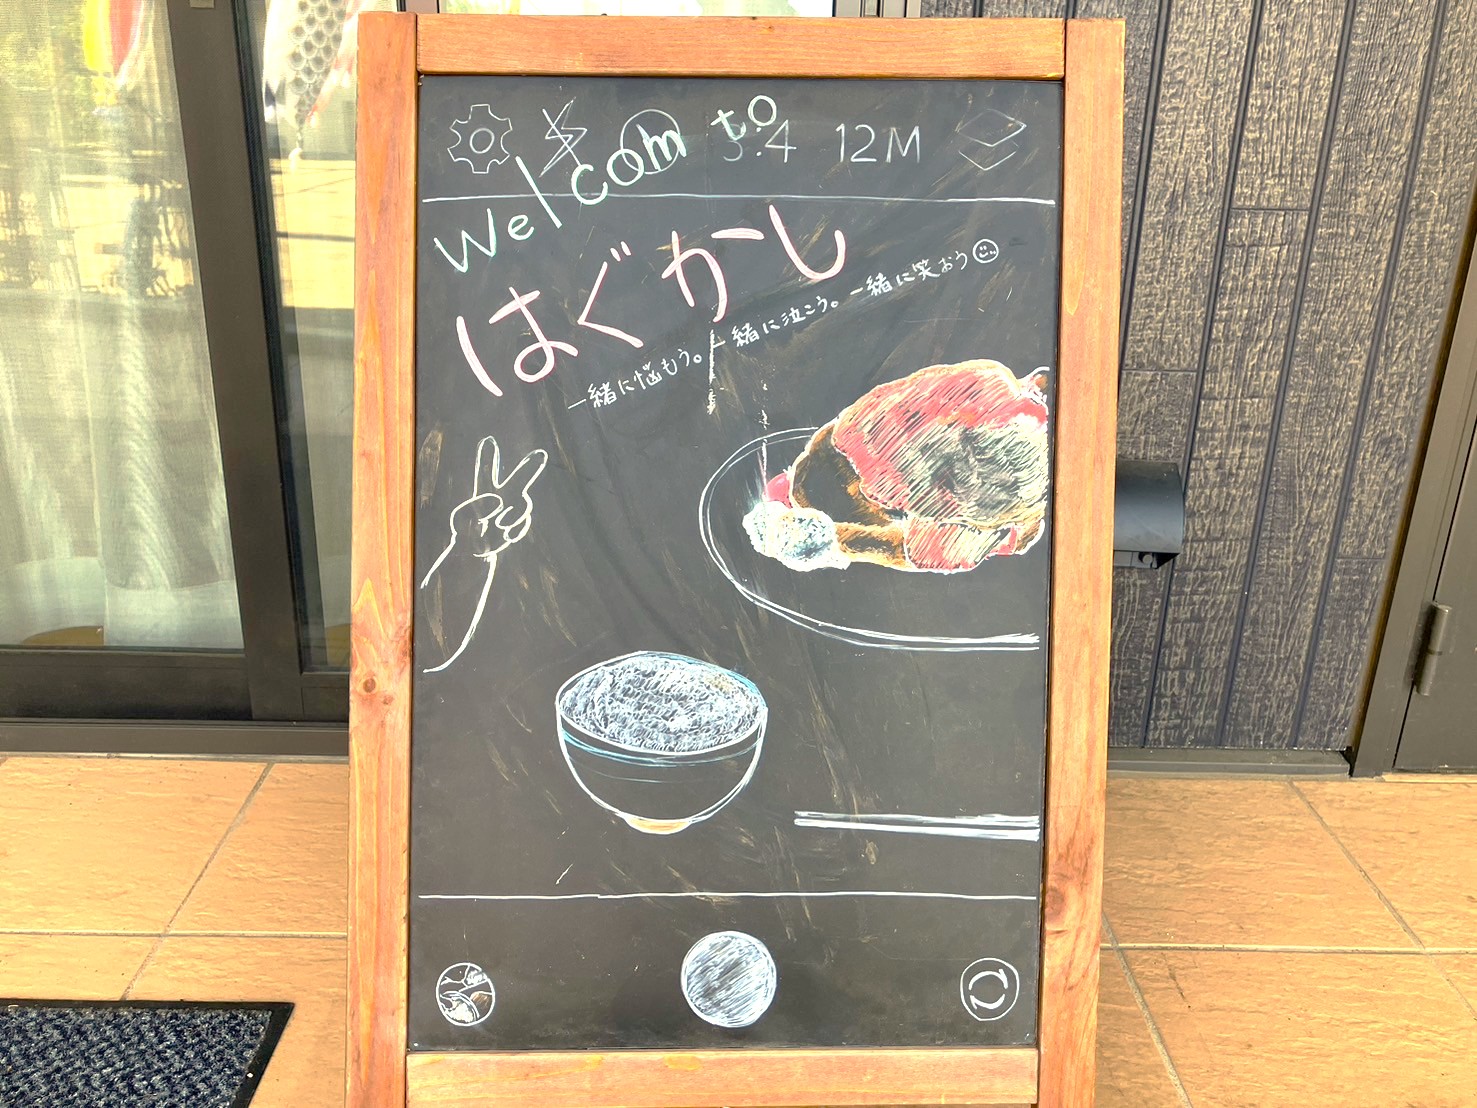 Welcom to
3:4 12M
はぐかし
一緒に悩もう。一緒に泣こう。一緒に笑おう